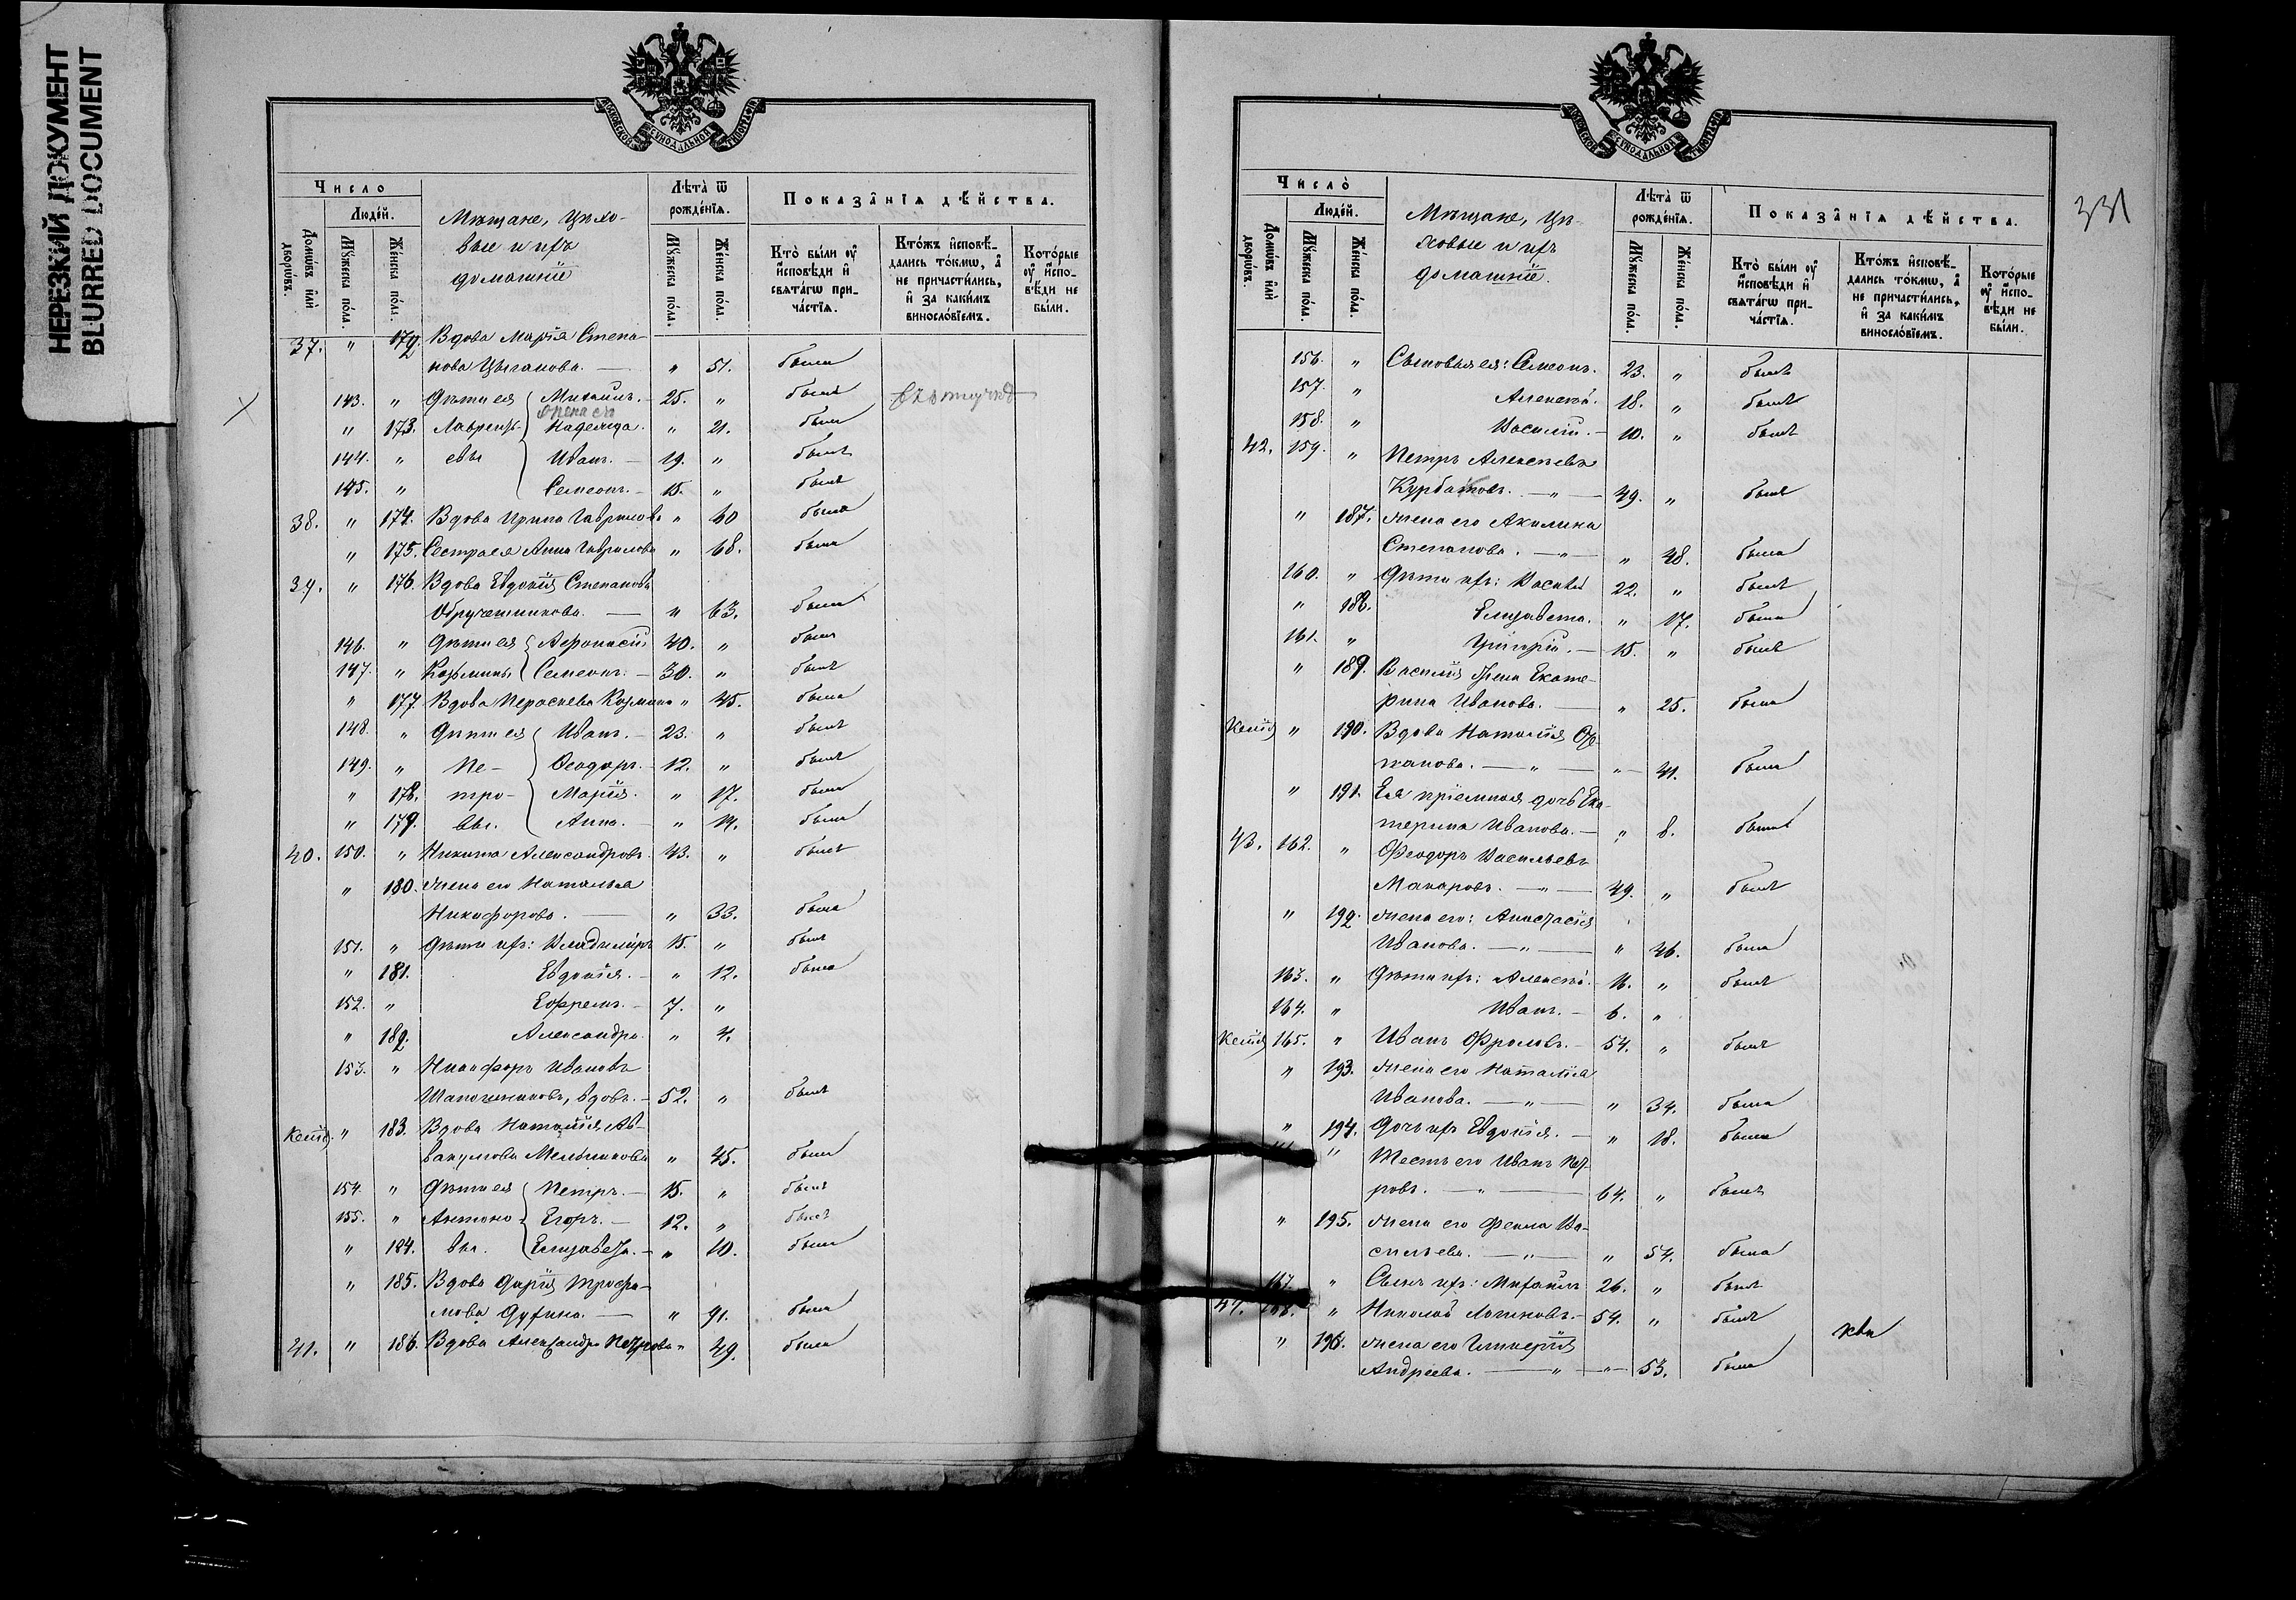 НЕРЕЗКИЙ ДОКУМЕНТ
BLURRED DOCUMENT
МОСКОВСКОЙ СѴНОДАЛЬНОЙ ТИПОГРАФІИ
Число
Людей.
Домовъ или дворовъ.
Мужеска пола.
Женска пола.
Мѣщане, цехо-
вые и ихъ
домашніе
Лѣта ѿ рожденїѧ.
Мужеска пола.
Женска пола.
Показанїѧ дѣйства.
Кто были оу исповѣди и свѧтагѡ причастїѧ.
Ктожъ исповѣдались токмѡ, а не причастились, и за какимъ винословїемъ.
Которые оу исповѣди не были.
37. " 172. Вдова Марія Степа-
нова Цыганова. — " 51. была
143. " Дѣти ея Михаилъ. — 25. " былъ
жена его
" 173. Лаврентье- Надежда. " 21. была
144. " евы Иванъ. — 19. " былъ
145. " Семеонъ. — 15. " былъ
38. " 174. Вдова Ирина Гаврилова " 60 была
" 175. Сестра ея Анна Гаврилова " 68. была
39. " 176. Вдова Евдокія Степанова
Обручешникова. — " 63. была
146. " Дѣти ея Афонасій 40. " былъ
147. " Козьмины Семеонъ. — 30. " былъ
" 177. Вдова Пераскева Козмина " 45. была
148. " Дѣти ея Иванъ. — 23. " былъ
149. " Пе- Ѳеодоръ. — 12. " былъ
" 178. тро- Марія. " 17. была
" 179. вы. Анна. — " 14. была
40. 150. " Никита Александровъ. 43. " былъ
" 180. жена его Наталья
Никифорова. — " 33. была
151. " Дѣти ихъ: Владиміръ 15. " былъ
" 181. Евдокія. — " 12. была
152. " Ефремъ. — 7. "
" 182. Александра. " 4.
153. " Никифоръ Ивановъ
Шапошниковъ, вдовъ. — 52. " былъ
" 183. Вдова Наталія Ав-
вакумова Мельникова " 45. была
154. " Дѣти ея Петръ. — 15. " былъ
155. " Антоно- Егоръ. — 12. " былъ
" 184. вы. Елизавета. — " 10. была
" 185. Вдова Дарія Трофи-
мова — " 91. была
41. " 186. Вдова Александра Петрова " 49. была
331
МОСКОВСКОЙ СѴНОДАЛЬНОЙ ТИПОГРАФІИ
Число
Людей.
Домовъ или дворовъ.
Мужеска пола.
Женска пола.
Мѣщане, це-
ховые и ихъ
домашніе.
Лѣта ѿ рожденїѧ.
Мужеска пола.
Женска пола.
Показанїѧ дѣйства.
Кто были оу исповѣди и свѧтагѡ причастїѧ.
Ктожъ исповѣдались токмѡ, а не причастились, и за какимъ винословїемъ.
Которые оу исповѣди не были.
156. " Сыновья ея: Семеонъ. 23. " былъ
157. " Алексѣй. 18. " былъ
158. " Василій. — 10. " былъ
42. 159. " Петръ Алексѣевъ
Курбатовъ. — " — 49. " былъ
" 187. жена его Акилина
Степанова. — " — " 48. была
160. " Дѣти ихъ: Василій 22. " былъ
" 188. Елизавета. " 17. была
161. " Григорій. — 15. " былъ
" 189. Василія жена Екате-
рина Иванова. — " 25. была
" 190. Вдова Наталія
— " — " 41. была
" 191. Ея пріемная дочь Ека-
терина Иванова. — " 8. была
43. 162. " Ѳеодоръ Васильевъ
Макаровъ. — " — 49. " былъ
" 192. жена его: Анастасія
Иванова. — " — " 46. была
163. " Дѣти ихъ: Алексѣй. 16. " былъ
164. " Иванъ. — 6. "
165. " Иванъ Фроловъ. — 54. " былъ
" 193. жена его Наталія
Иванова. — " — " 34. была
" 194. Дочь ихъ Евдокія. — " 18. была
" Тесть его Иванъ Пет-
ровъ. — " — 64. " былъ
" 195. жена его Фекла Ва-
сильева. — " — " 54. была
167. " Сынъ ихъ: Михаилъ 26. " былъ
168. " Николай Логиновъ. — 54. " былъ
" 196. жена его Гликерія
Андреева. — " — " 53. была